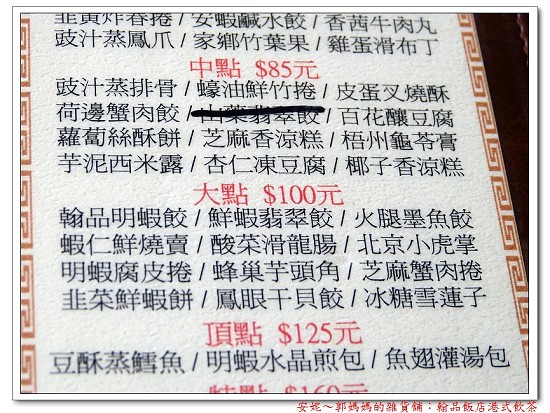 韭黃炸春捲 / 安蝦鹹水餃 / 香茜牛肉丸
豉汁蒸鳳爪 / 家鄉竹葉果 / 雞蛋滑布丁
中點 $85元
豉汁蒸排骨 / 蠔油鮮竹捲 / 皮蛋叉燒酥
荷邊蟹肉餃 / 山藥翡翠餃 / 百花釀豆腐
蘿蔔絲酥餅 / 芝麻香涼糕 / 梧州龜苓膏
芋泥西米露 / 杏仁凍豆腐 / 椰子香涼糕
大點 $100元
翰品明蝦餃 / 鮮蝦翡翠餃 / 火腿墨魚餃
蝦仁鮮燒賣 / 酸菜滑龍腸 / 北京小虎掌
明蝦腐皮捲 / 蜂巢芋頭角 / 芝麻蟹肉捲
韭菜鮮蝦餅 / 鳳眼干貝餃 / 冰糖雪蓮子
頂點 $125元
豆酥蒸鱈魚 / 明蝦水晶煎包 / 魚翅灌湯包
特點 $160元
安妮～郭媽媽的雜貨舖：翰品飯店港式飲茶